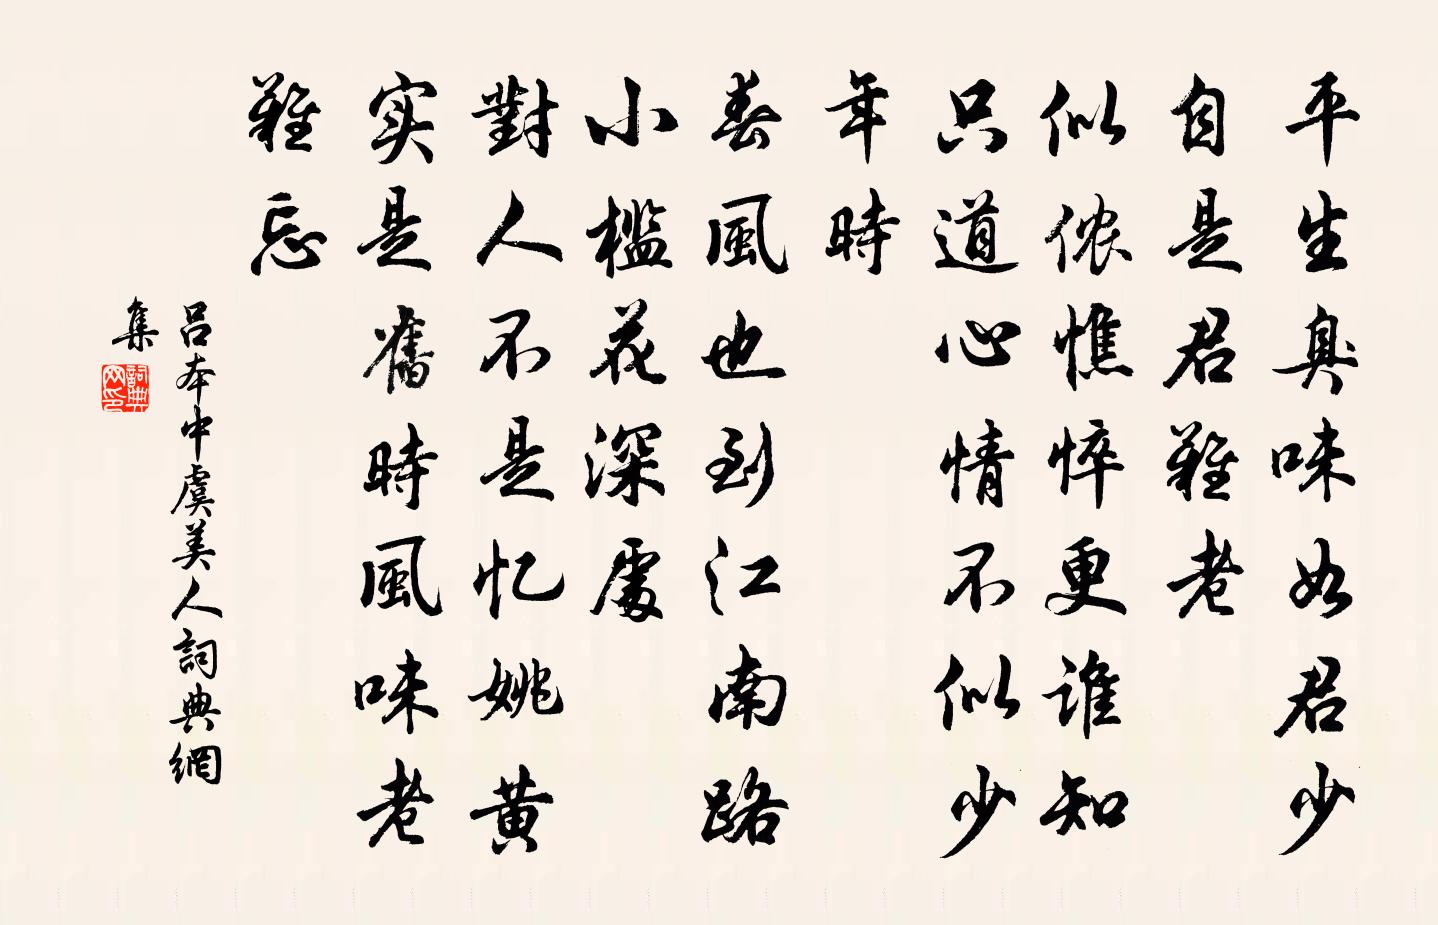 平生臭味如君少
自是君難老
似侬憔悴更谁知
只道心情不似少
年時
春風也到江南路
小檻花深處
對人不是忆姚黄
实是舊時風味老
難忘
吕本中虞美人詞典網
集
詞典
网印